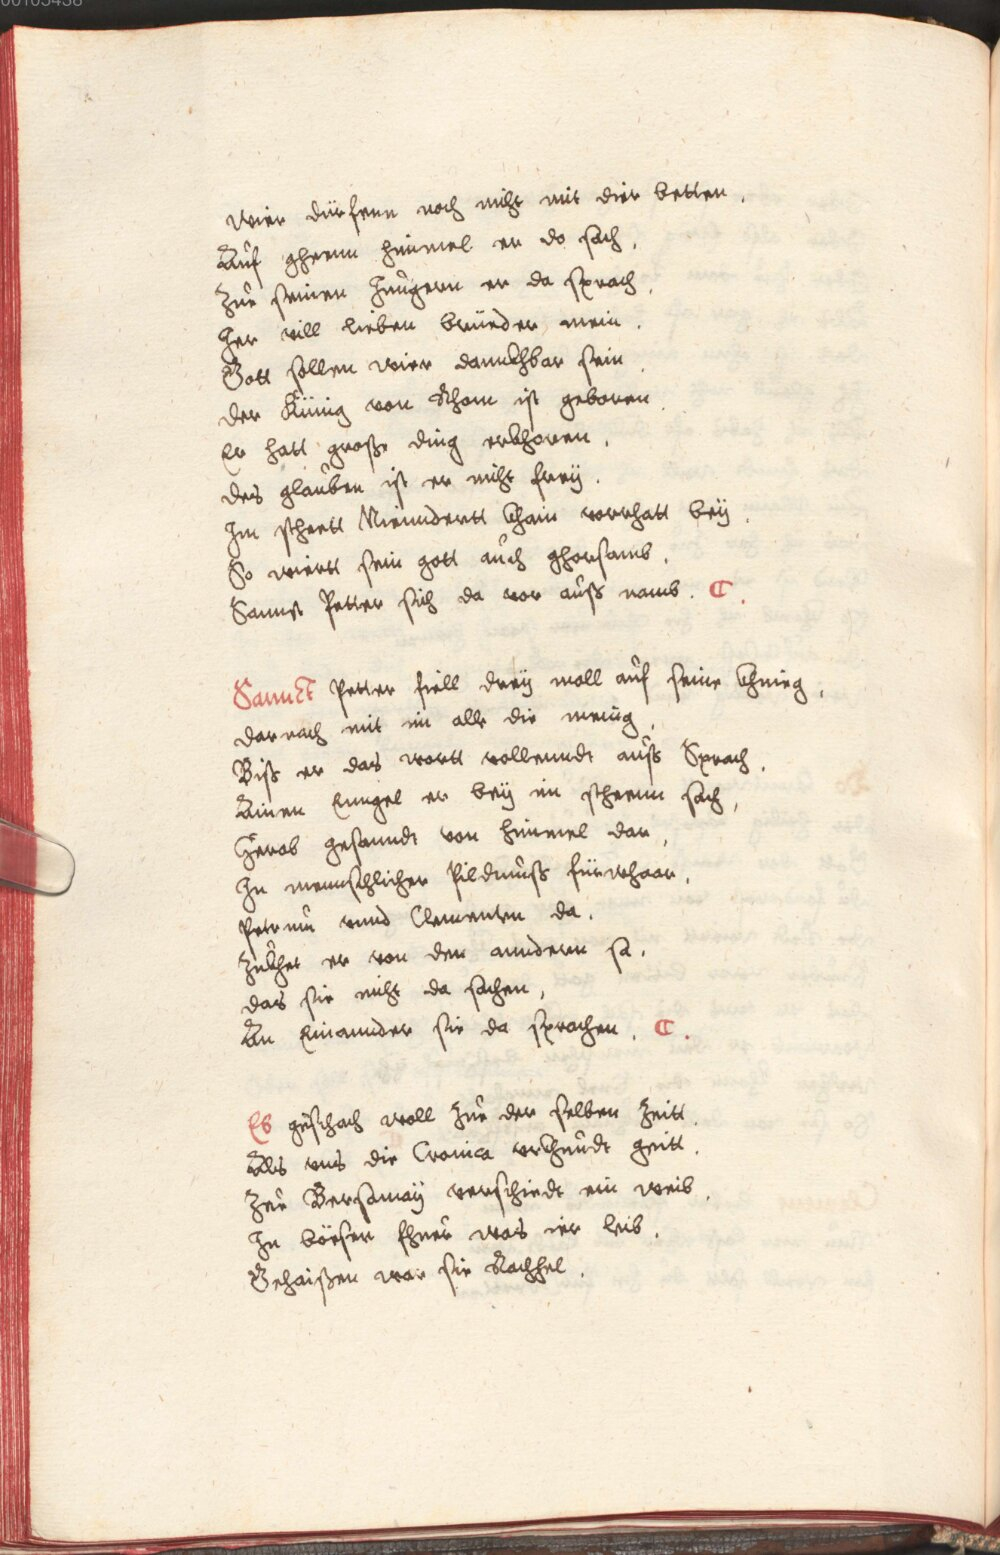 00105438
Wier dürfenn noch nicht mit dier betten.
Auf gheenn himmel er do sach,
Zue seinen Jungern er da sprach,
Her vill lieben brüeder mein.
Gott sollen wier dannckhbar sein
der Künig von Rhom ist geboren
Er hatt große ding erkhoren.
des glauben ist er nicht freÿ.
Im steett Niemdertt khain vorhatt beÿ.
So wiertt sein gott auch ghorsamb.
Sannct Petter sich da vor auß namb. C.
Sannct Petter fiell dreÿ moll auf seine khnieg,
darnach mit im alle die menig,
Biß er das wortt vollenndt auß Sprach,
Ainen Enngel er beÿ im steenn sach,
Herab gesanndt von himmel dar,
In mennschlicher Pildnuß fürwhaar,
Petrum vnnd Clementen da.
Zukhet er von den anndern sa.
das sie nicht da sachen,
An Einannder sie da sprachen. C.
Es geschach woll Zue der selben Zeitt
Als vns die Cronica verkhundt geitt.
Zue Bersamaÿ verschiedt ein weib,
In böeser Ehuer was ier leib.
Gehaißen war sie Rachhel.